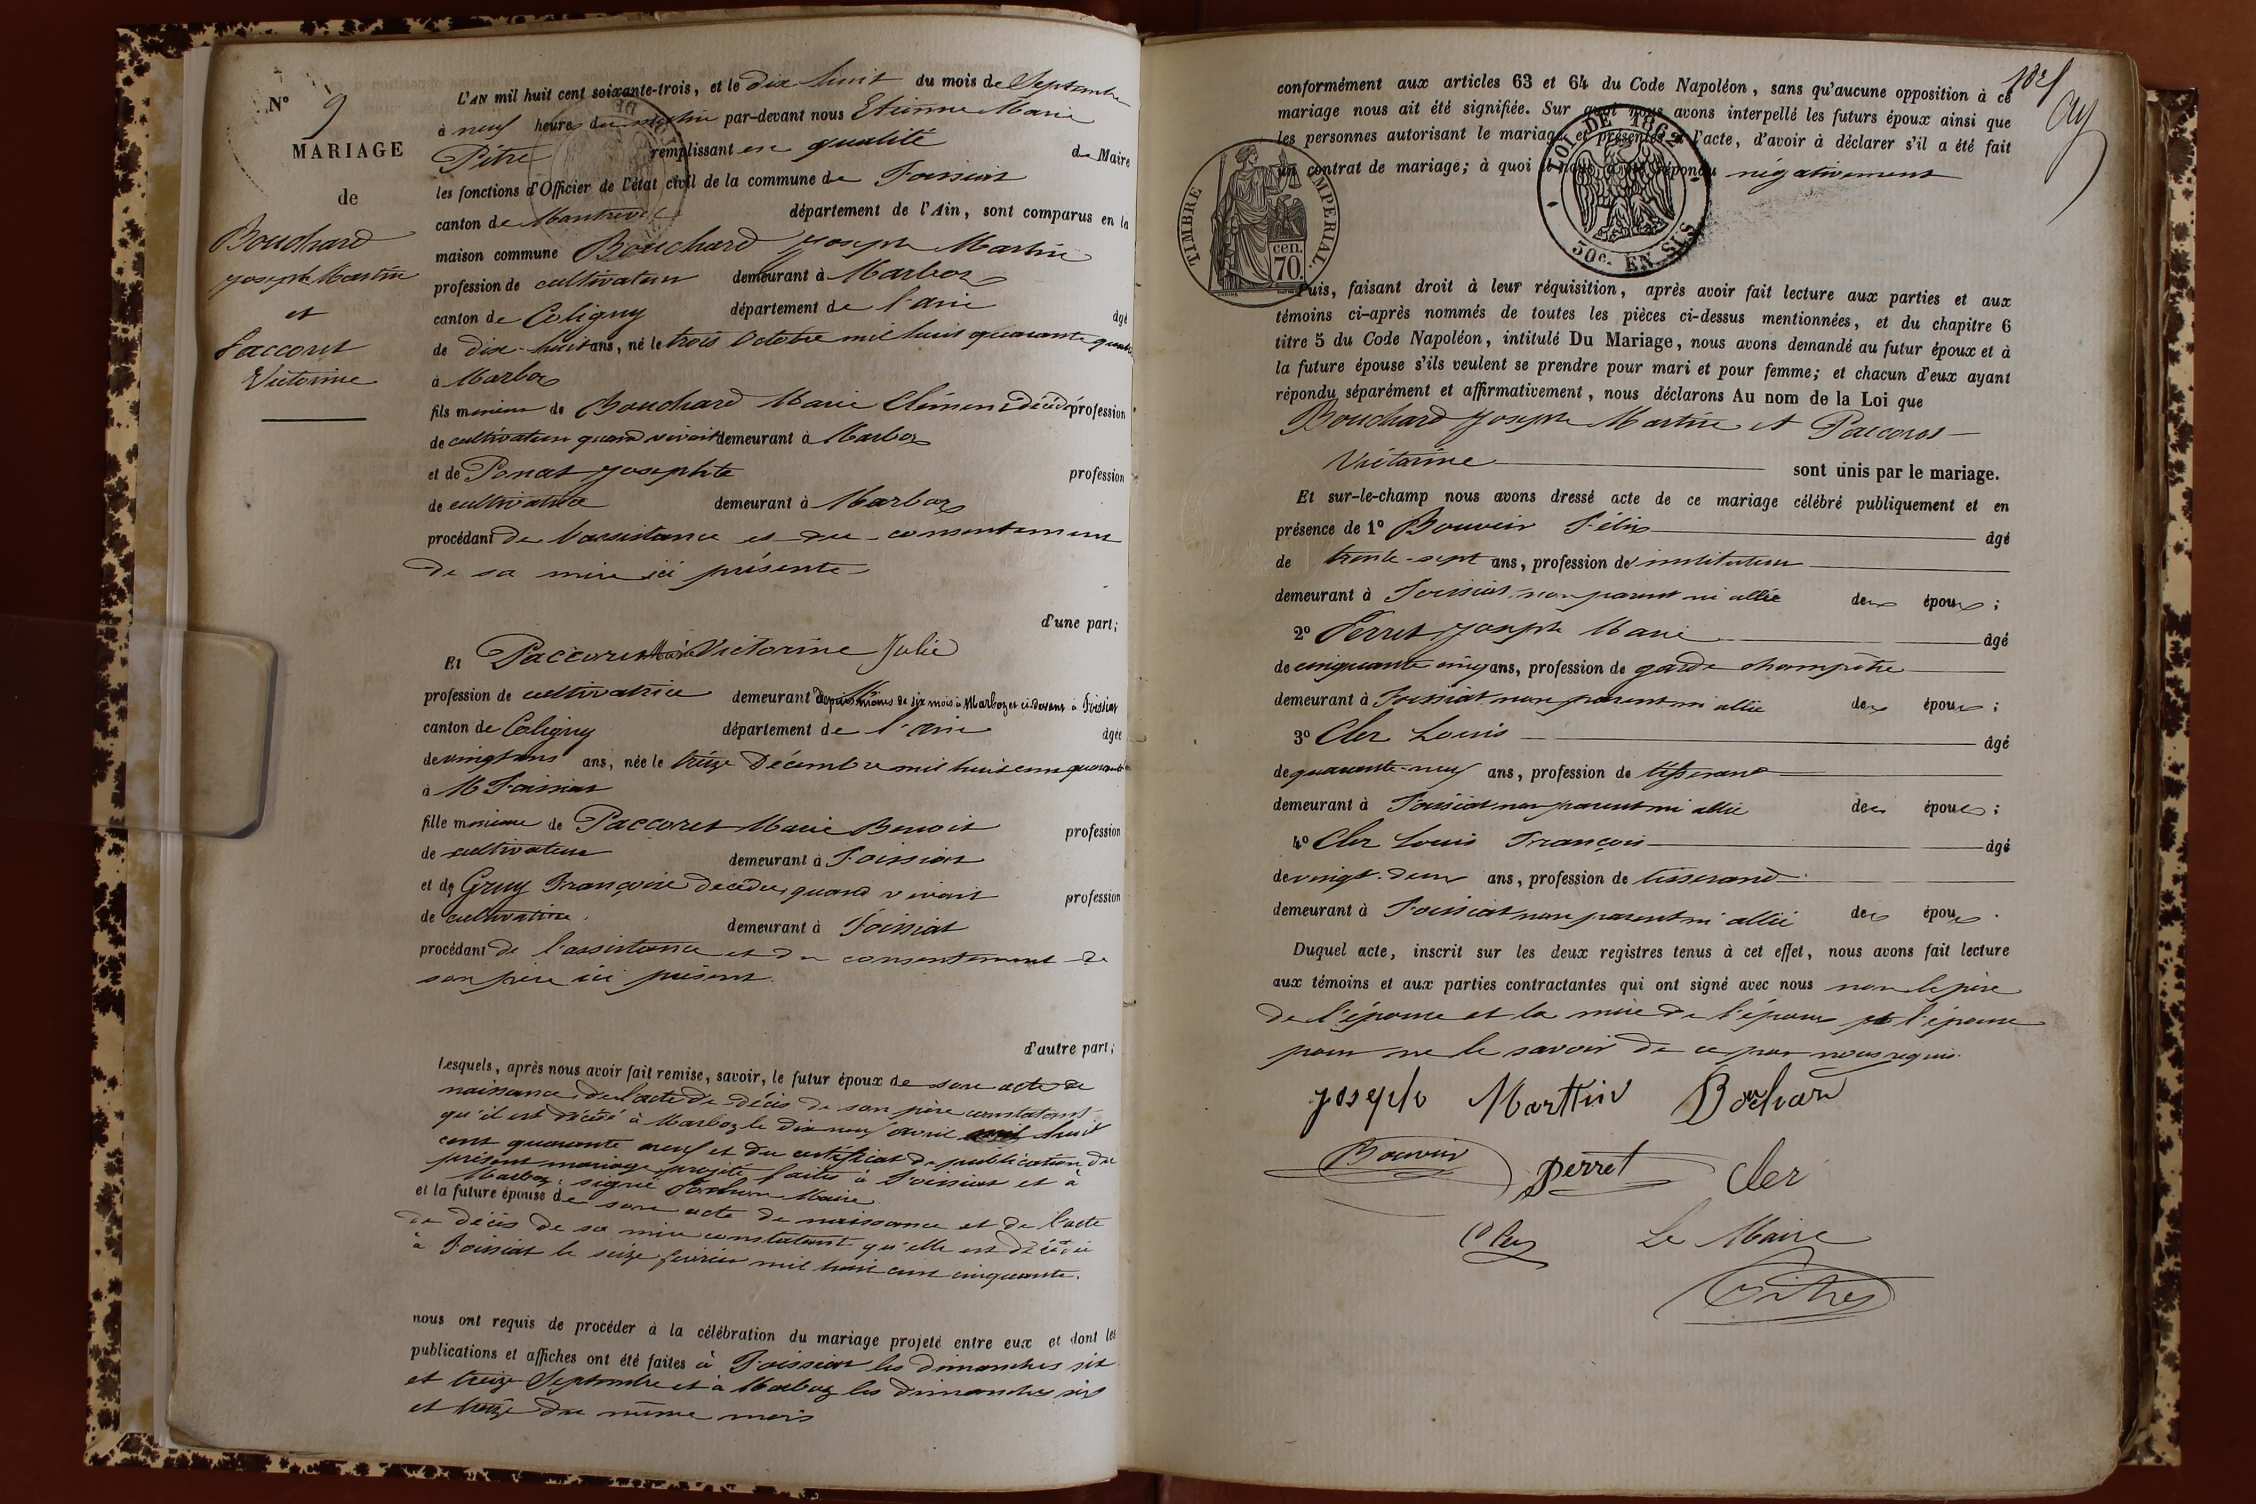 N° 9
MARIAGE
de
Bouchard
Joseph Martin
et
Paccoret
Victorine
L'AN mil huit cent soixante-trois, et le dix huit du mois de Septembre
à neuf heures du matin par-devant nous Etienne Marie
Pitre remplissant en qualité de Maire
les fonctions d'Officier de l'état civil de la commune de Foissiat
canton de Montrevel département de l'Ain, sont comparus en la
maison commune Bouchard Joseph Martin
profession de cultivateur demeurant à Marboz
canton de Coligny département de l'ain âgé
de dix-huit ans, né le trois Octobre mil huit quarante quatre
à Marboz
fils mineur de Bouchard Marie Clément décédé profession
de cultivateur quand vivait demeurant à Marboz
et de Ponat Josephte profession
de cultivatrice demeurant à Marboz
procédant de l'assistance et du consentement
de sa mère ici présente
d'une part;
Et Paccoret Marie Victorine Julie
profession de cultivatrice demeurant depuis moins de six mois à Marboz et ci-devant à Foissiat
canton de Coligny département de l'ain âgée
de vingt ans ans, née le treize Décembre mil huit cent quarante
à Foissiat
fille mineure de Paccoret Marie Benoit profession
de cultivateur demeurant à Foissiat
et de Gruy Françoise décédée, quand vivait profession
de cultivatrice demeurant à Foissiat
procédant de l'assistance et du consentement de
son père ici présent.
d'autre part;
Lesquels, après nous avoir fait remise, savoir, le futur époux de son acte de
naissance, de l'acte de décès de son père constatant
qu'il est décédé à Marboz le dix neuf avril mil huit
cent quarante neuf et du certificat de publication du
présent mariage projeté faites à Foissiat et à
Marboz, signé Maire
et la future épouse de son acte de naissance et de l'acte
de décès de sa mère constatant qu'elle est décédée
à Foissiat le seize février mil huit cent cinquante.
nous ont requis de procéder à la célébration du mariage projeté entre eux et dont les
publications et affiches ont été faites à Foissiat les dimanches six
et treize Septembre et à Marboz les dimanches six
et treize du même mois
conformément aux articles 63 et 64 du Code Napoléon, sans qu'aucune opposition à ce
mariage nous ait été signifiée. Sur quoi nous avons interpellé les futurs époux ainsi que
les personnes autorisant le mariage, et présentes à l'acte, d'avoir à déclarer s'il a été fait
un contrat de mariage; à quoi il nous a été répondu négativement
TIMBRE IMPERIAL.
cen.
70.
LOI DE 1862
50c. EN SUS
Puis, faisant droit à leur réquisition, après avoir fait lecture aux parties et aux
témoins ci-après nommés de toutes les pièces ci-dessus mentionnées, et du chapitre 6
titre 5 du Code Napoléon, intitulé Du Mariage, nous avons demandé au futur époux et à
la future épouse s'ils veulent se prendre pour mari et pour femme; et chacun d'eux ayant
répondu séparément et affirmativement, nous déclarons Au nom de la Loi que
Bouchard Joseph Martin et Paccoret
Victorine sont unis par le mariage.
Et sur-le-champ nous avons dressé acte de ce mariage célébré publiquement et en
présence de 1° Bouvier Félix âgé
de trente-sept ans, profession de instituteur
demeurant à Foissiat non parent ni allié des époux;
2° Perret Joseph Marie âgé
de cinquante cinq ans, profession de garde champêtre
demeurant à Foissiat non parent ni allié des époux;
3° Cler Louis âgé
de quarante-neuf ans, profession de tisserand
demeurant à Foissiat non parent ni allié des époux;
4° Cler Louis François âgé
de vingt-deux ans, profession de tisserand
demeurant à Foissiat non parent ni allié des époux.
Duquel acte, inscrit sur les deux registres tenus à cet effet, nous avons fait lecture
aux témoins et aux parties contractantes qui ont signé avec nous non le père
de l'épouse et la mère de l'époux et l'épouse
pour ne le savoir de ce par nous requis.
Joseph Marttin Bochard
Bouvier Perret Cler
Cler Le Maire
Pitre